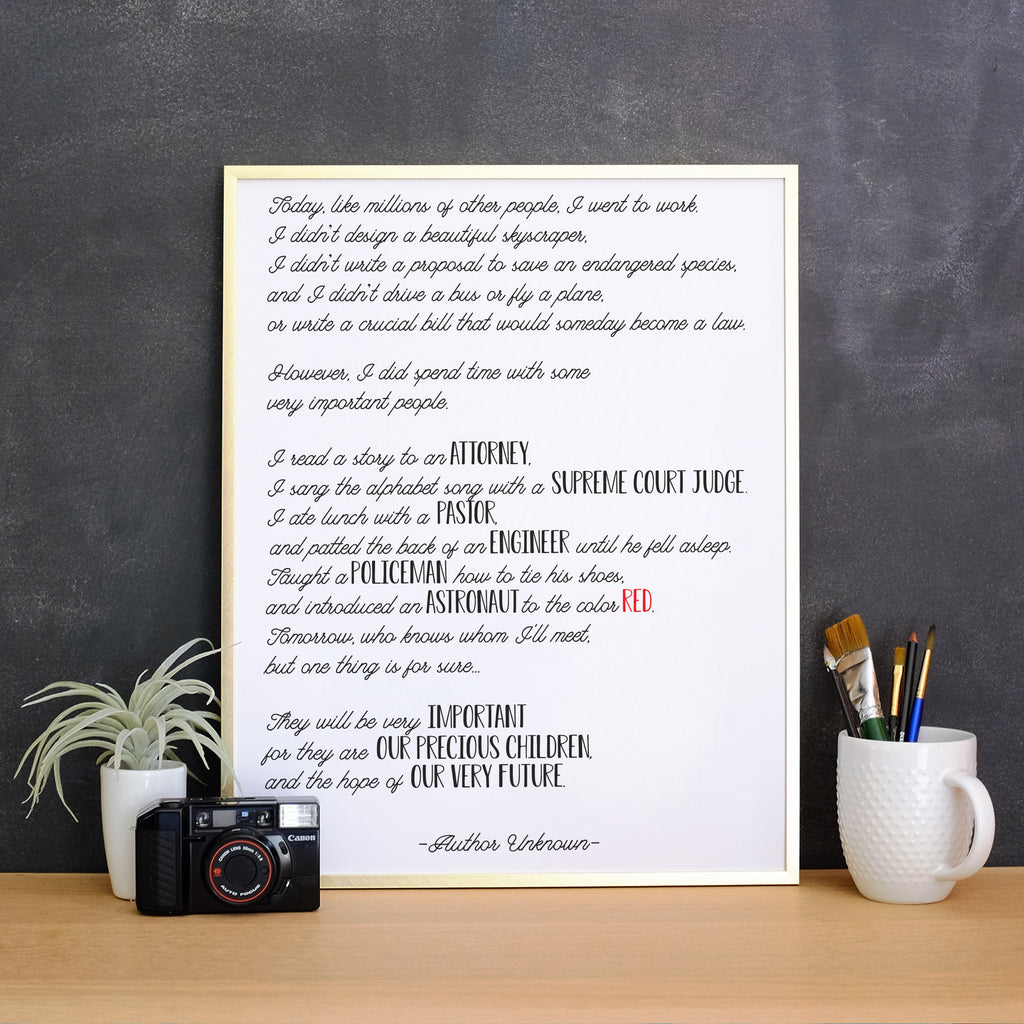 Today, like millions of other people, I went to work.
I didn't design a beautiful skyscraper,
I didn't write a proposal to save an endangered species,
and I didn't drive a bus or fly a plane,
or write a crucial bill that would someday become a law.
However, I did spend time with some
very important people.
I read a story to an ATTORNEY,
I sang the alphabet song with a SUPREME COURT JUDGE.
I ate lunch with a PASTOR,
and patted the back of an ENGINEER until he fell asleep.
Taught a POLICEMAN how to tie his shoes,
and introduced an ASTRONAUT to the color RED.
Tomorrow, who knows whom I'll meet,
but one thing is for sure...
They will be very IMPORTANT
for they are OUR PRECIOUS CHILDREN,
and the hope of OUR VERY FUTURE.
-Author Unknown-
Canon
CANON LENS 38mm 1:2.8
AUTO FOCUS